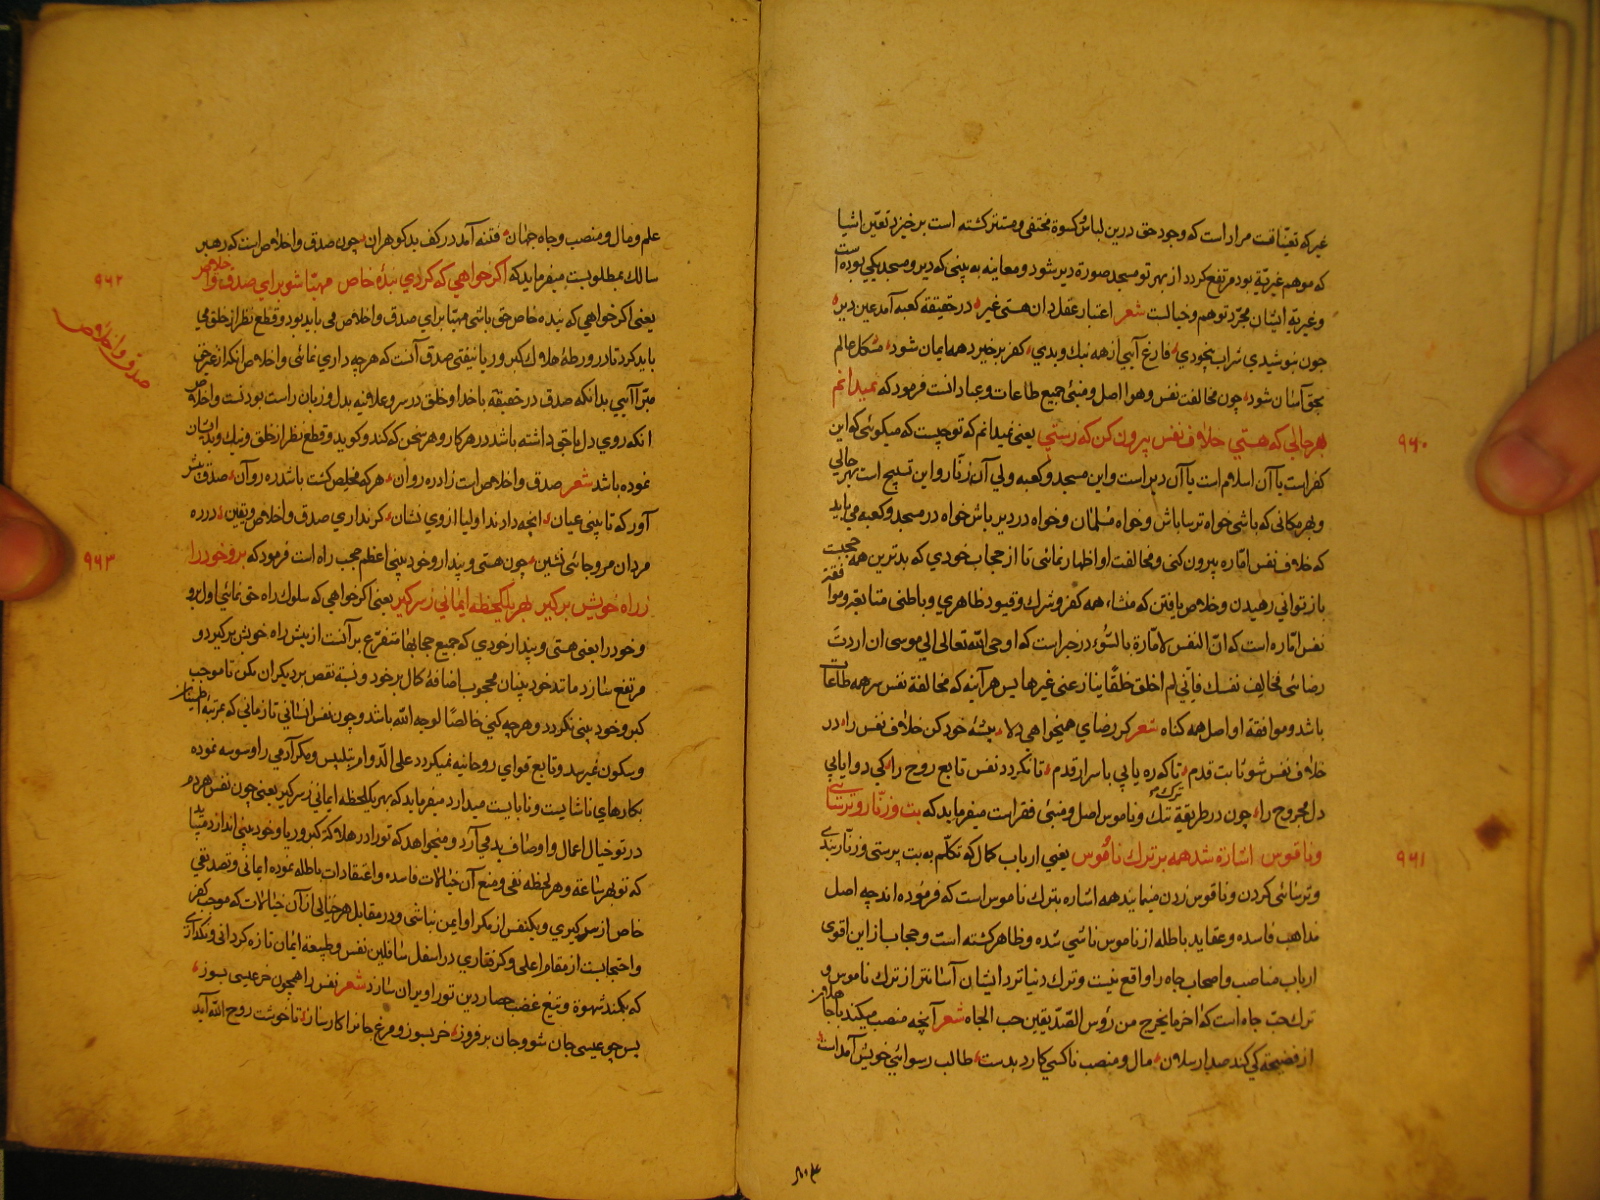 غیر که تعینات مراد است که وجود حق درین لباس و کسوة مختفی و مستتر کشته است برخیزد تعین اشیا
که موهم غیریة بود مرتفع کردد از بهر تو مسجد صورة دیر شود و معاینه به بینی که دیر و مسجد یکی بوده است
و غیریة ایشان مجرد توهم و خیالست شعر اعتبار عقل دان هستی غیر در حقیقة کعبه آمد عین دیر
چون بنوشیدی شراب بیخودی فارغ آیی از همه نیک و بدی کفر برخیزد همه ایمان شود مشکل عالم
بحق آسان شود چون مخالفت نفس و هوا اصل و مبنی جمیع طاعات و عبادانست فرمود که نمیدانم
بهر حالی که هستی خلاف نفس بیرون کن که رستی یعنی نمیدانم که تو چیست که میکوئی که این
۹۶۰
کفر است یا آن اسلام است یا آن دیر است و این مسجد و کعبه ولی آن زنار و این تسبیح است بهر حالی
و بهر مکانی که باشی خواه ترسا باش و خواه مسلمان و خواه در دیر باش خواه در مسجد و کعبه می باید
که خلاف نفس اماره بیرون کنی و مخالفت او اظهار نمائی تا از حجاب خودی که بدترین همه حجبست
باز توانی رهیدن و خلاص یافتن که منشاء همه کفر و شرک و قیود ظاهری و باطنی متابعة و موافقة
نفس اماره است که ان النفس لامارة بالسوء در خبر است که اوحی الله تعالی الی موسی ان اردت
رضائی فخالف نفسک فانی لم اخلق خلقا ینازعنی غیرها پس هر آینه که مخالفة نفس سر همه طاعات
باشد و موافقة او اصل همه کناه شعر کر رضای حق همیخواهی دلا پیشه خود کن خلاف نفس را در
خلاف نفس شو ثابت قدم تا که ره یابی باسرار قدم تا نکردد نفس تابع روح را کی دوا یابی
دل مجروح را چون در طریقة ترک ننک و ناموس اصل و مبنی فقر است میفرماید که بت و زنار و ترسائی
و ناقوس اشارة شد همه بر ترک ناموس یعنی ارباب کمال که تکلم به بت پرستی و زنار بندی
۹۶۱
و ترسائی کردن و ناقوس زدن مینمایند همه اشاره بترک ناموس است که فرموده اند چه اصل
مذاهب فاسده و عقاید باطله از ناموس ناشی شده و ظاهر کشته است و حجاب از این اقوی
ارباب مناصب و اصحاب جاه را واقع نیست و ترک دنیا نزد ایشان آسانتر از ترک ناموس و
ترک حب جاه است که اخر ما یخرج من رؤس الصدیقین حب الجاه شعر آنچه منصب میکند با جاهلان
از فضیحة کی کند صد ارسلان مال و منصب ناکسی کارد بدست طالب رسوائی خویش آمداست
علم و مال
علم و مال و منصب و جاه جهان فتنه آمد در کف بدکوهران چون صدق و اخلاص است که رهبر
سالک بمطلوبست میفرماید که اکر خواهی که کردی بنده خاص مهیا شو برای صدق و اخلاص
۹۶۲
صدق و اخلاص
یعنی اکر خواهی که بنده خاص حق باشی مهیا برای صدق و اخلاص می باید بود و قطع نظر از خلق می
باید کرد تا در ورطه هلاک کبر و ریا نیفتی صدق آنست که هر چه داری نمائی و اخلاص آنکه از غرض
مبرا آیی بدانکه صدق در حقیقة با خدا و خلق در سر و علانیه بدل و زبان راست بودنست و اخلاص
آنکه روی دل با حق داشته باشد در هر کار و هر سخن که کند و کوید و قطع نظر از خلق و نیک و بد ایشان
نموده باشد شعر صدق و اخلاص است زاد ره روان هر که مخلص کشت باشد ره روآن صدق پیش
آور که تا بینی عیان آنچه دادند اولیا از وی نشان کر نداری صدق و اخلاص و یقین در ره
مردان مرو جائی نشین چون هستی و پندار و خود بینی اعظم حجب راه است فرمود که برو خود را
۹۶۳
ز راه خویش برکیر بهر یک لحظه ایمانی ز سر کیر یعنی اکر خواهی که سلوک راه حق نمائی اول برو
و خود را یعنی هستی و پندار خودی که جمیع حجابها متفرع بر آنست از پیش راه خویش برکیر و
مرتفع ساز و مانند خود بینان محجوب اضافة کمال بر خود و نسبة نقص بر دیکران مکن تا موجب
کبر و خود بینی نکردد و هر چه کنی خالصا لوجه الله باشد و چون نفس انسانی تا زمانی که بمرتبة اطمینان
و سکون نمیرسد و تابع قوای روحانیه نمیکردد علی الدوام بتلبیس و مکر آدمی را وسوسه نموده
بکارهای ناشایست و نابایست میدارد میفرماید که بهر یک لحظه ایمانی ز سر کیر یعنی چون نفس هر دم
در تو خیال اعمال و اوصاف بد می آرد و میخواهد که تو را در هلاکة کبر و ریا و خود بینی اندازد می باید
که تو بهر ساعة و هر لحظه نفی و منع آن خیالات فاسده و اعتقادات باطله نموده ایمانی و تصدیقی
خاص از سر کیری و یکنفس از مکر او ایمن نباشی و در مقابل هر خیالی از آن خیالات که موجب کفر
و احتجابست از مقام اعلی و کرفتاری در اسفل سافلین نفس و طبیعة ایمان تازه کردانی و نکذاری
که بکمند شهوة و تیغ غضب حصار دین تو را ویران سازد شعر نفس را همچون خر عیسی بسوز
پس چو عیسی جان شو و جان برفروز خر بسوز و مرغ جانرا کار ساز تا خوشت روح الله آید